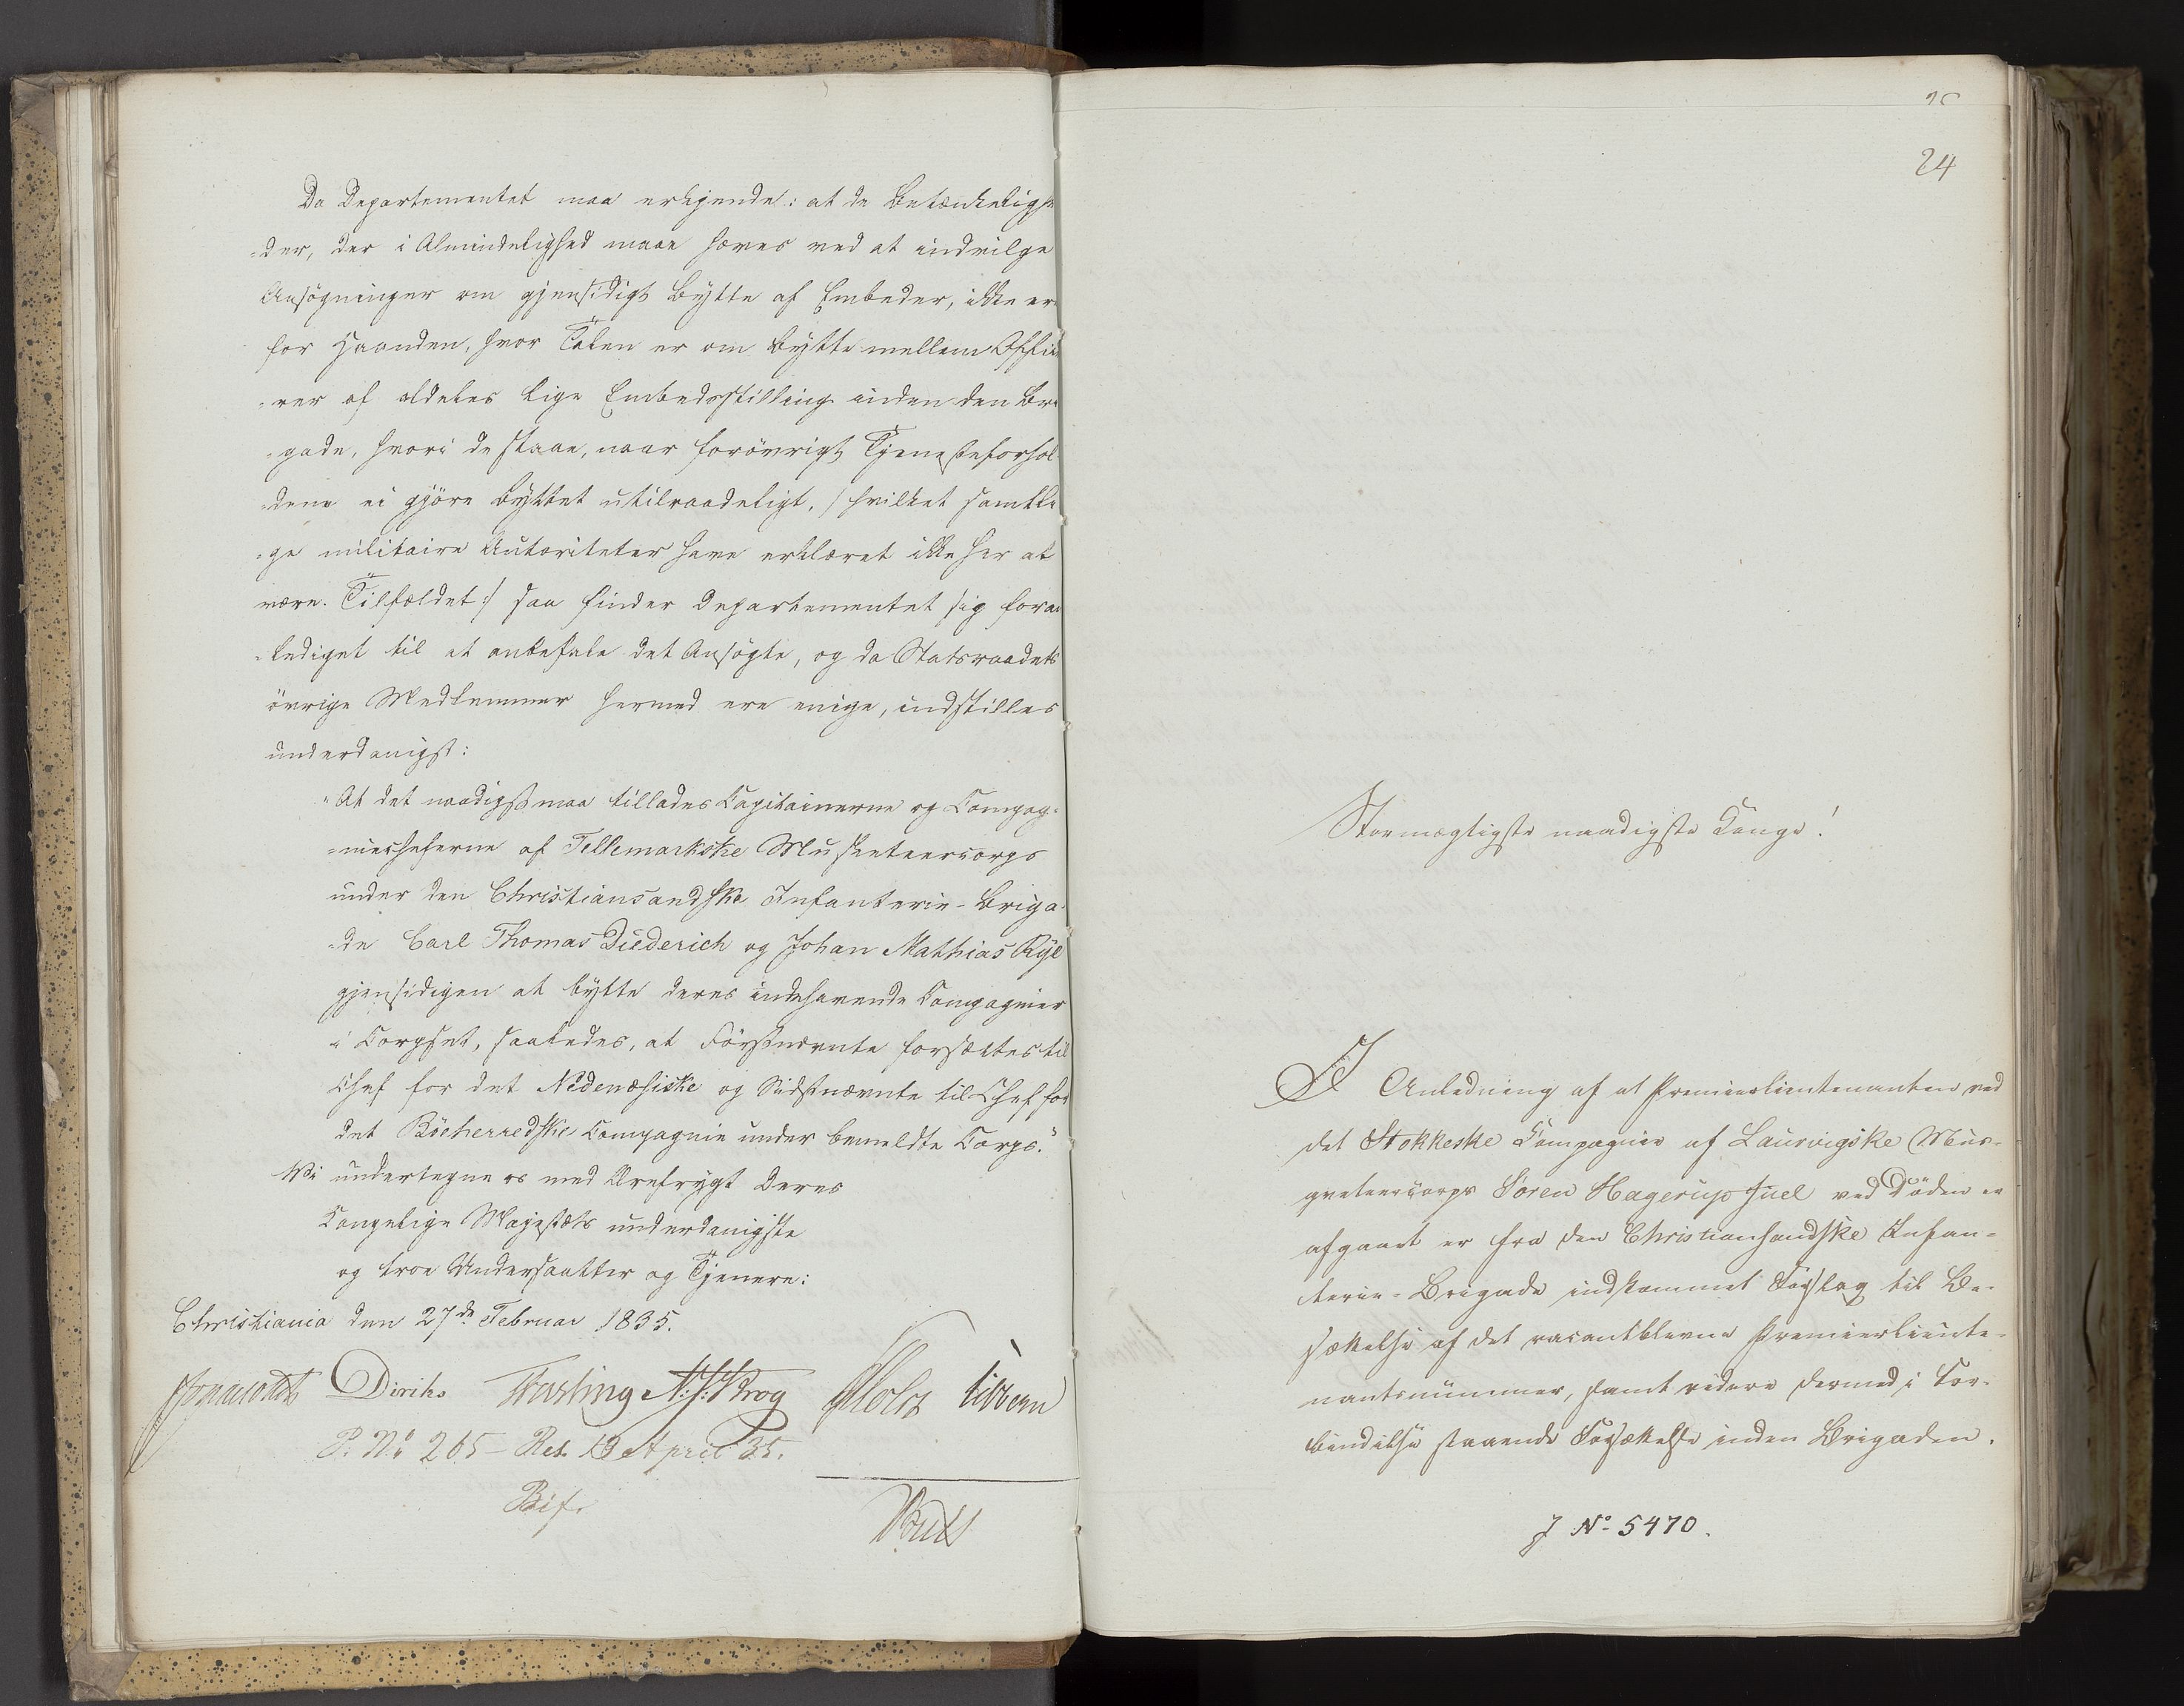 Da Departementet maa erkjende: at de Betænkelighe
-der, der i Almindelighed maae haves ved at indvilge
Ansögninger om gjensidigt Bytte af Embeder, ikke er
for Haanden, hvor Talen er om Bytte mellem Offici
-rer af aldeles lige Embedsstilling inden den Bri
-gade, hvori de staae, naar forövrigt Tjenesteforhol
-dene ei gjöre Byttet utilraadeligt, /: hvilket samtli
-ge militaire Autoriteter have erklæret ikke her at
være Tilfældet :/ saa finder Departementet sig foran
-lediget til at anbefale det Ansögte, og da Statsraadets
övrige Medlemmer hermed ere enige, indstilles
underdanigst:
"At det naadigst maa tillades Capitainerne og Compag-
-niecheferne af Tellemarkske Musketeercorps
under den Christiansandske Infanterie-Briga-
-de Carl Thomas Diederich og Johan Mathias Rye
gjensidigen at bytte deres indehavende Compagnier
i Corpset, saaledes, at Förstnævnte forsættes til
Chef for det Nedenæsiske og Sidstnævnte til Chef for
det Böeherredske Compagnie under bemeldte Corps."
Vi undertegne os med Ærefrygt Deres
Kongelige Majestæts underdanigste
og troe Undersaatter og Tjenere:
Christiania den 27de Februar 1835.
Diriks Fasting N: J: Krog Holst Vibe
P. No. 265 - Res. 13 April 35.
Bif.
24
Stormægtigste naadigste Konge!
I Anledning af at Premierlieutenanten ved
det Stokkeske Compagnie af Laurvigske Mus-
qveteercorps Sören Hagerup Juel ved Döden er
afgaaet er fra den Christiansandske Infan-
terie-Brigade indkommet Forslag til Be-
sættelse af det vacantblevne Premierlieute-
nantsnummer, samt videre dermed i For-
bindelse staaende Forsættelse inden Brigaden.
J No. 5470.